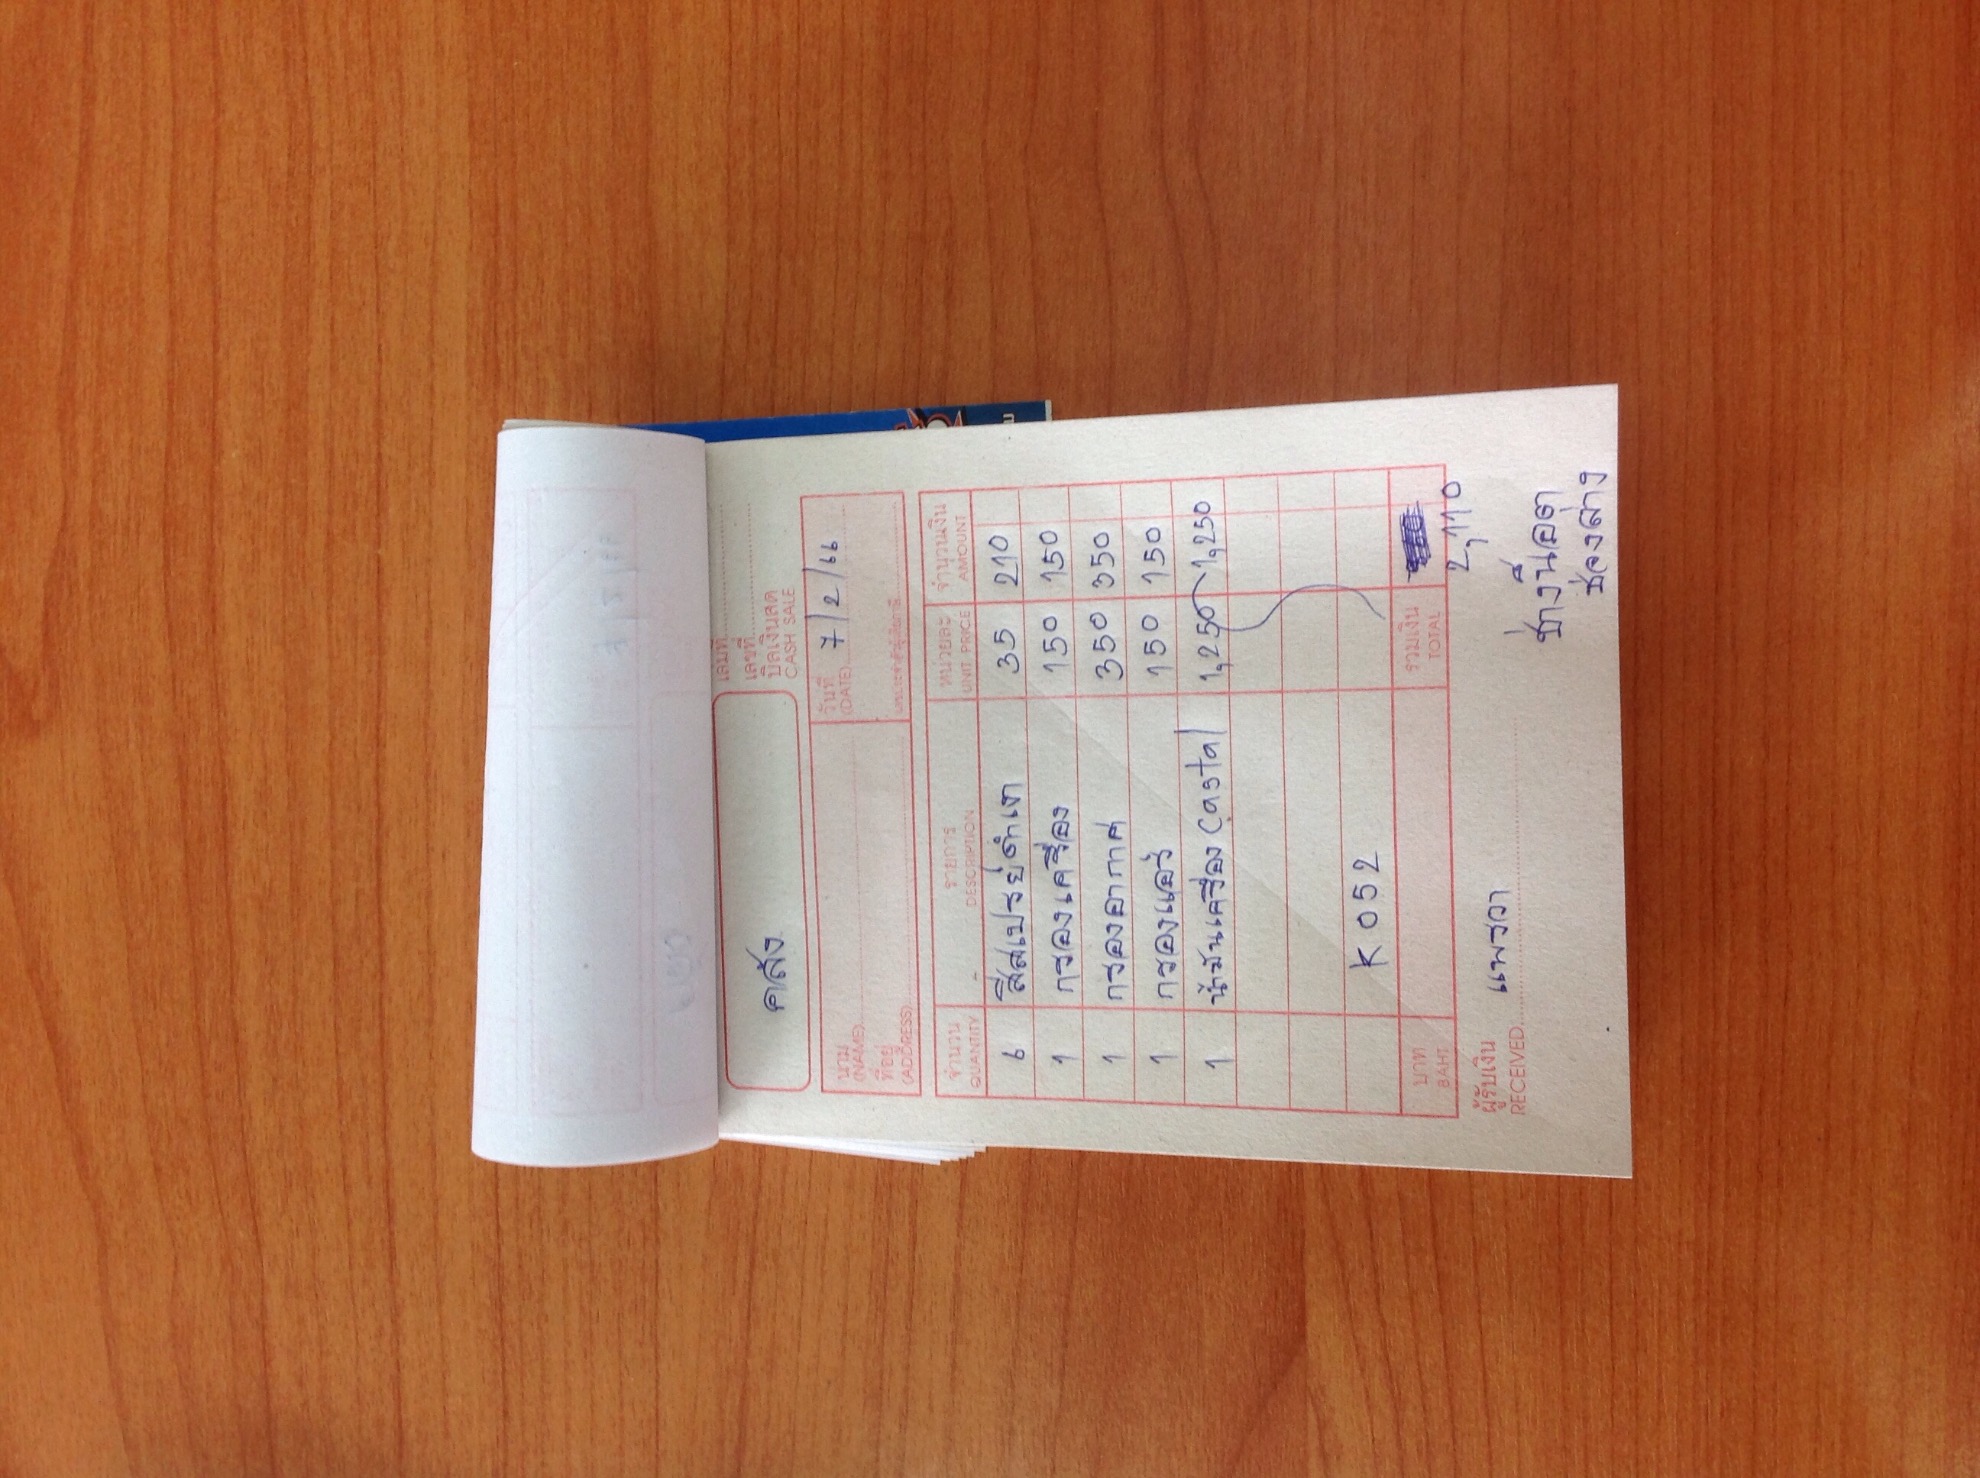 คลัง
เล่มที่
เลขที่
บิลเงินสด
CASH SALE
นาม
(NAME)
วันที่ 7/2/66
(DATE)
ที่อยู่
(ADDRESS)
จำนวน รายการ หน่วยละ จำนวนเงิน
QUANTITY DESCRIPTION UNIT PRICE AMOUNT
6 สีสเปรย์ดำเงา 35 210
1 กรองเครื่อง 150 150
1 กรองอากาศ 350 350
1 กรองแอร์ 150 150
1 น้ำมันเครื่อง Castal 1,250 1,250
K 052
บาท รวมเงิน
BAHT TOTAL
2,110
ผู้รับเงิน แพรวา
RECEIVED
ช่างน๊อต
ช่วงล่าง